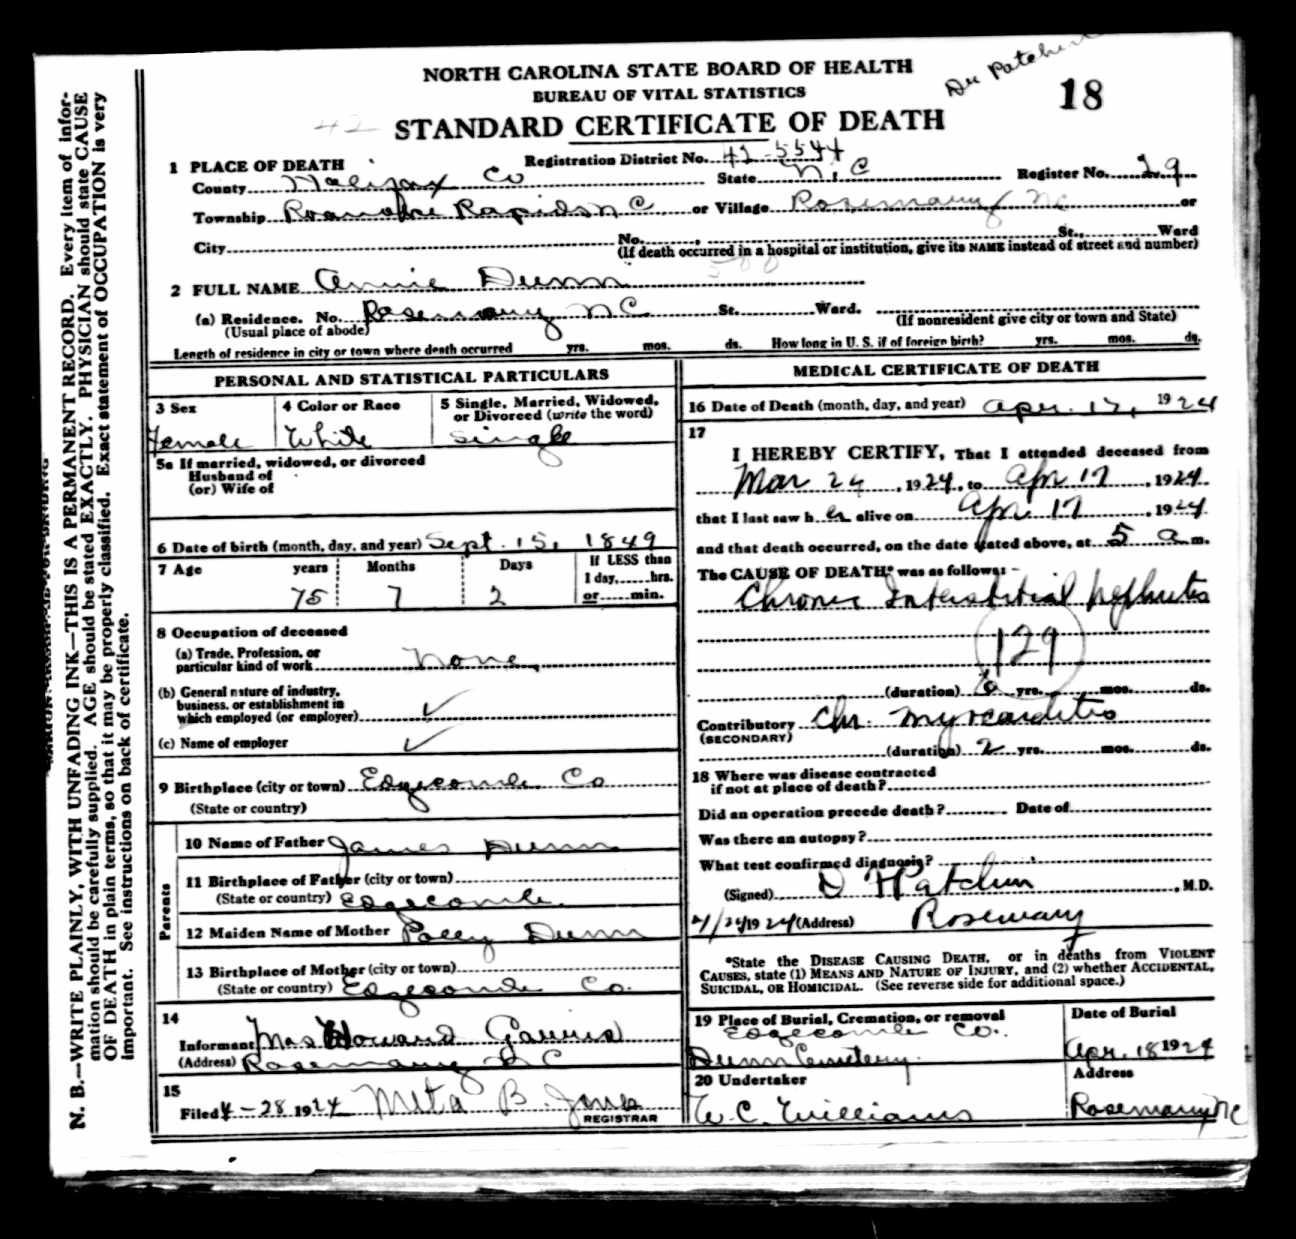 Dr Patchin
NORTH CAROLINA STATE BOARD OF HEALTH
18
BUREAU OF VITAL STATISTICS
42 STANDARD CERTIFICATE OF DEATH
1 PLACE OF DEATH Registration District No. 42-5544
County Halifax Co State N.C Register No. 29
Township Roanoke Rapids N C or Village Rosemary NC or
City No. , St., Ward
(If death occurred in a hospital or institution, give its NAME instead of street and number)
2 FULL NAME Annie Dunn
(a) Residence. No. Rosemary N C St. Ward.
(Usual place of abode) (If nonresident give city or town and State)
Length of residence in city or town where death occurred yrs. mos. ds. How long in U. S. if of foreign birth? yrs. mos. ds.
PERSONAL AND STATISTICAL PARTICULARS
3 Sex 4 Color or Race 5 Single, Married, Widowed, or Divorced (write the word)
Female White Single
5a If married, widowed, or divorced
Husband of
(or) Wife of
6 Date of birth (month, day, and year) Sept. 15, 1849
7 Age years Months Days If LESS than
1 day, hrs.
75 7 2 or min.
8 Occupation of deceased
(a) Trade, Profession, or
particular kind of work None
(b) General nature of industry,
business, or establishment in
which employed (or employer) ✓
(c) Name of employer ✓
9 Birthplace (city or town) Edgecombe Co
(State or country)
Parents
10 Name of Father James Dunn
11 Birthplace of Father (city or town)
(State or country) Edgecombe
12 Maiden Name of Mother Polly Dunn
13 Birthplace of Mother (city or town)
(State or country) Edgecombe Co.
14
Informant Mrs Howard
(Address) Rosemary N C
15
Filed 4-28 1924 Meta B. Jones
REGISTRAR
MEDICAL CERTIFICATE OF DEATH
16 Date of Death (month, day, and year) Apr. 17, 1924
17
I HEREBY CERTIFY, That I attended deceased from
Mar 24, 1924, to Apr 17, 1924.
that I last saw h er alive on Apr. 17, 1924
and that death occurred, on the date stated above, at 5 a m.
The CAUSE OF DEATH* was as follows:
Chronic Interstitial Nephritis
129
(duration) 6 yrs. mos. ds.
Contributory Chr. Myocarditis
(SECONDARY)
(duration) 2 yrs. mos. ds.
18 Where was disease contracted
if not at place of death?
Did an operation precede death? Date of
Was there an autopsy?
What test confirmed diagnosis?
(Signed) D Patchin, M.D.
4/24/1924 (Address) Rosemary
*State the DISEASE CAUSING DEATH, or in deaths from VIOLENT
CAUSES, state (1) MEANS AND NATURE OF INJURY, and (2) whether ACCIDENTAL,
SUICIDAL, OR HOMICIDAL. (See reverse side for additional space.)
19 Place of Burial, Cremation, or removal Date of Burial
Edgecombe Co.
Dunn Cemetery. Apr. 18 1924
20 Undertaker Address
W. C. Williams Rosemary NC
N. B.—WRITE PLAINLY, WITH UNFADING INK—THIS IS A PERMANENT RECORD. Every item of infor-
mation should be carefully supplied. AGE should be stated EXACTLY. PHYSICIAN should state CAUSE
OF DEATH in plain terms, so that it may be properly classified. Exact statement of OCCUPATION is very
important. See instructions on back of certificate.